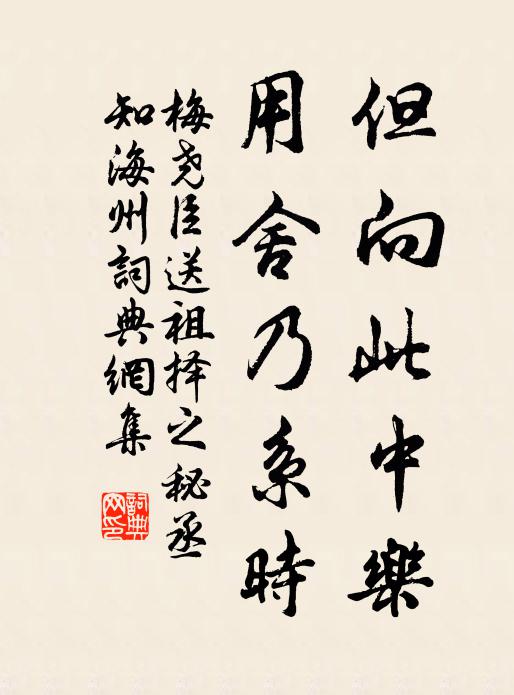 但向此中樂
用舍乃系時
梅尧臣送祖择之秘丞
知海州詞典網集
詞典
网印